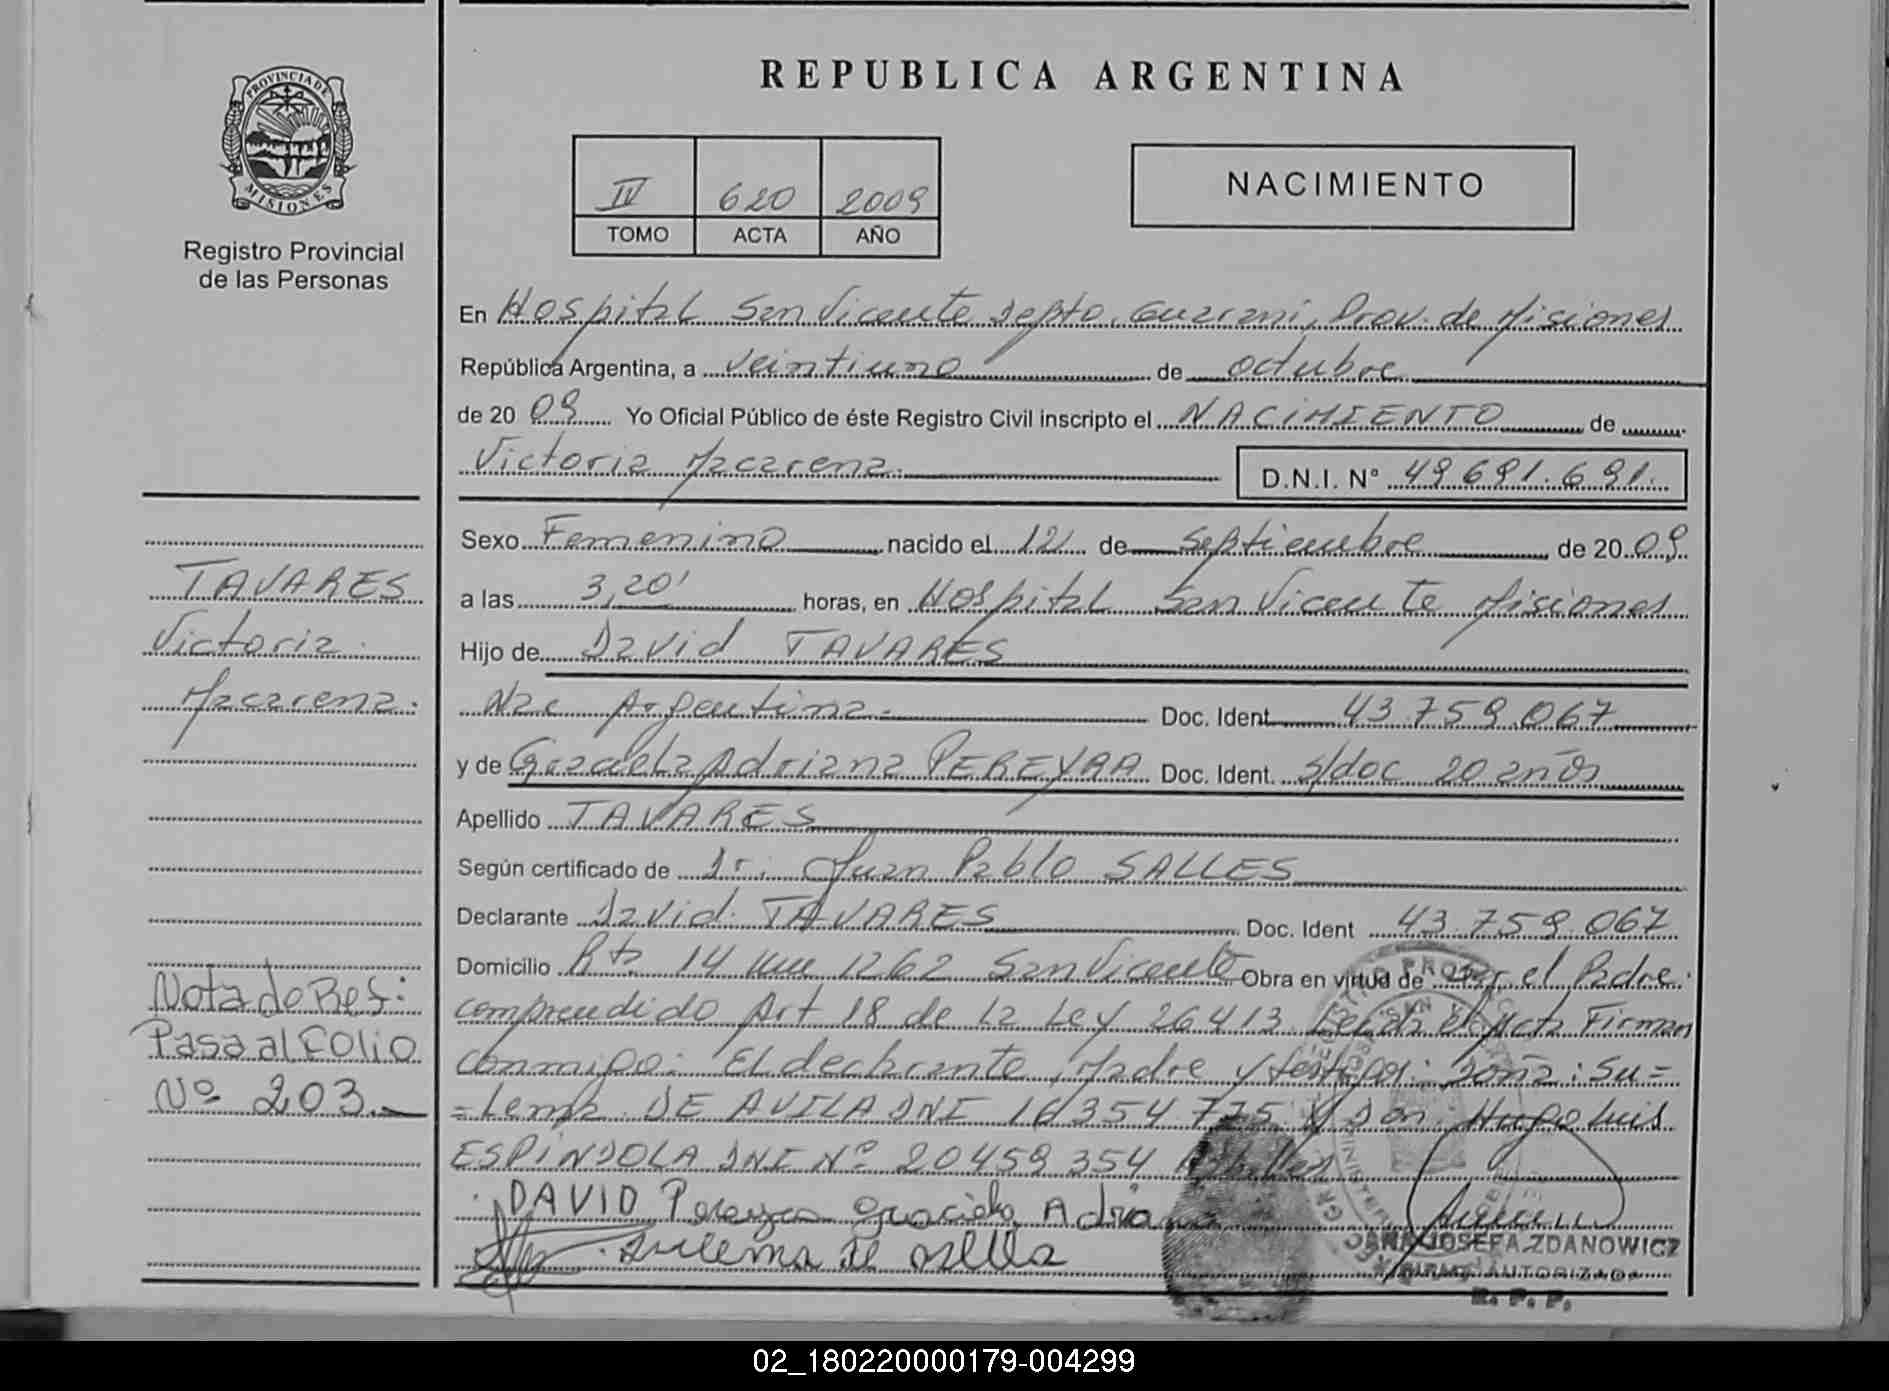 PROVINCIA DE
MISIONES
Registro Provincial
de las Personas
REPUBLICA ARGENTINA
IV 620 2009
TOMO ACTA AÑO
NACIMIENTO
En Hospital San Vicente Depto. Guarani, Prov. de Misiones
República Argentina, a veintiuno de octubre
de 2009 Yo Oficial Público de éste Registro Civil inscripto el NACIMIENTO de
Victoria Macarena.
D.N.I. Nº 49 691.691.
Sexo Femenino nacido el 12 de septiembre de 2009
a las 3,20' horas, en Hospital San Vicente Misiones
Hijo de David TAVARES
Nac Argentina. Doc. Ident 43.759.067
y de Graciela Adriana PEREYRA Doc. Ident. s/doc 20 años
Apellido TAVARES
Según certificado de Dr. Juan Pablo SALLES
Declarante David TAVARES Doc. Ident 43.759.067
Domicilio Rta 14 km 1262 San Vicente Obra en virtud de ser el Padre.
comprendido Art 18 de la Ley 26413 Leida el Acta Firman
conmigo: El declarante, Madre y testigos: Doña: Su=
=lema DE AVILA DNI 16354.775 y Don Hugo Luis
ESPINDOLA DNI Nº 20459354
DAVID Pereyra Graciela Adriana
Sulema de
JOSEFA ZDANOWICZ
FIRMA AUTORIZADA
R. P. P.
TAVARES
Victoria
Macarena.
Nota de Ref:
Pasa al Folio
Nº 203.
02_180220000179-004299